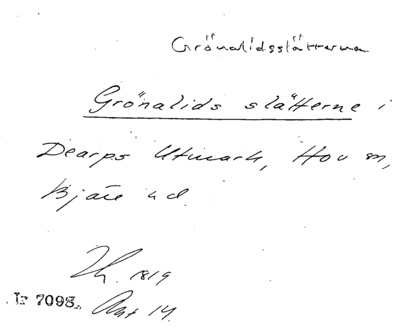 Grönalidsslätterna
Grönalids slätterne i
Dearps Utmark, Hov sn,
Bjäre hd.
1819
Lr 7098. Akt 14.